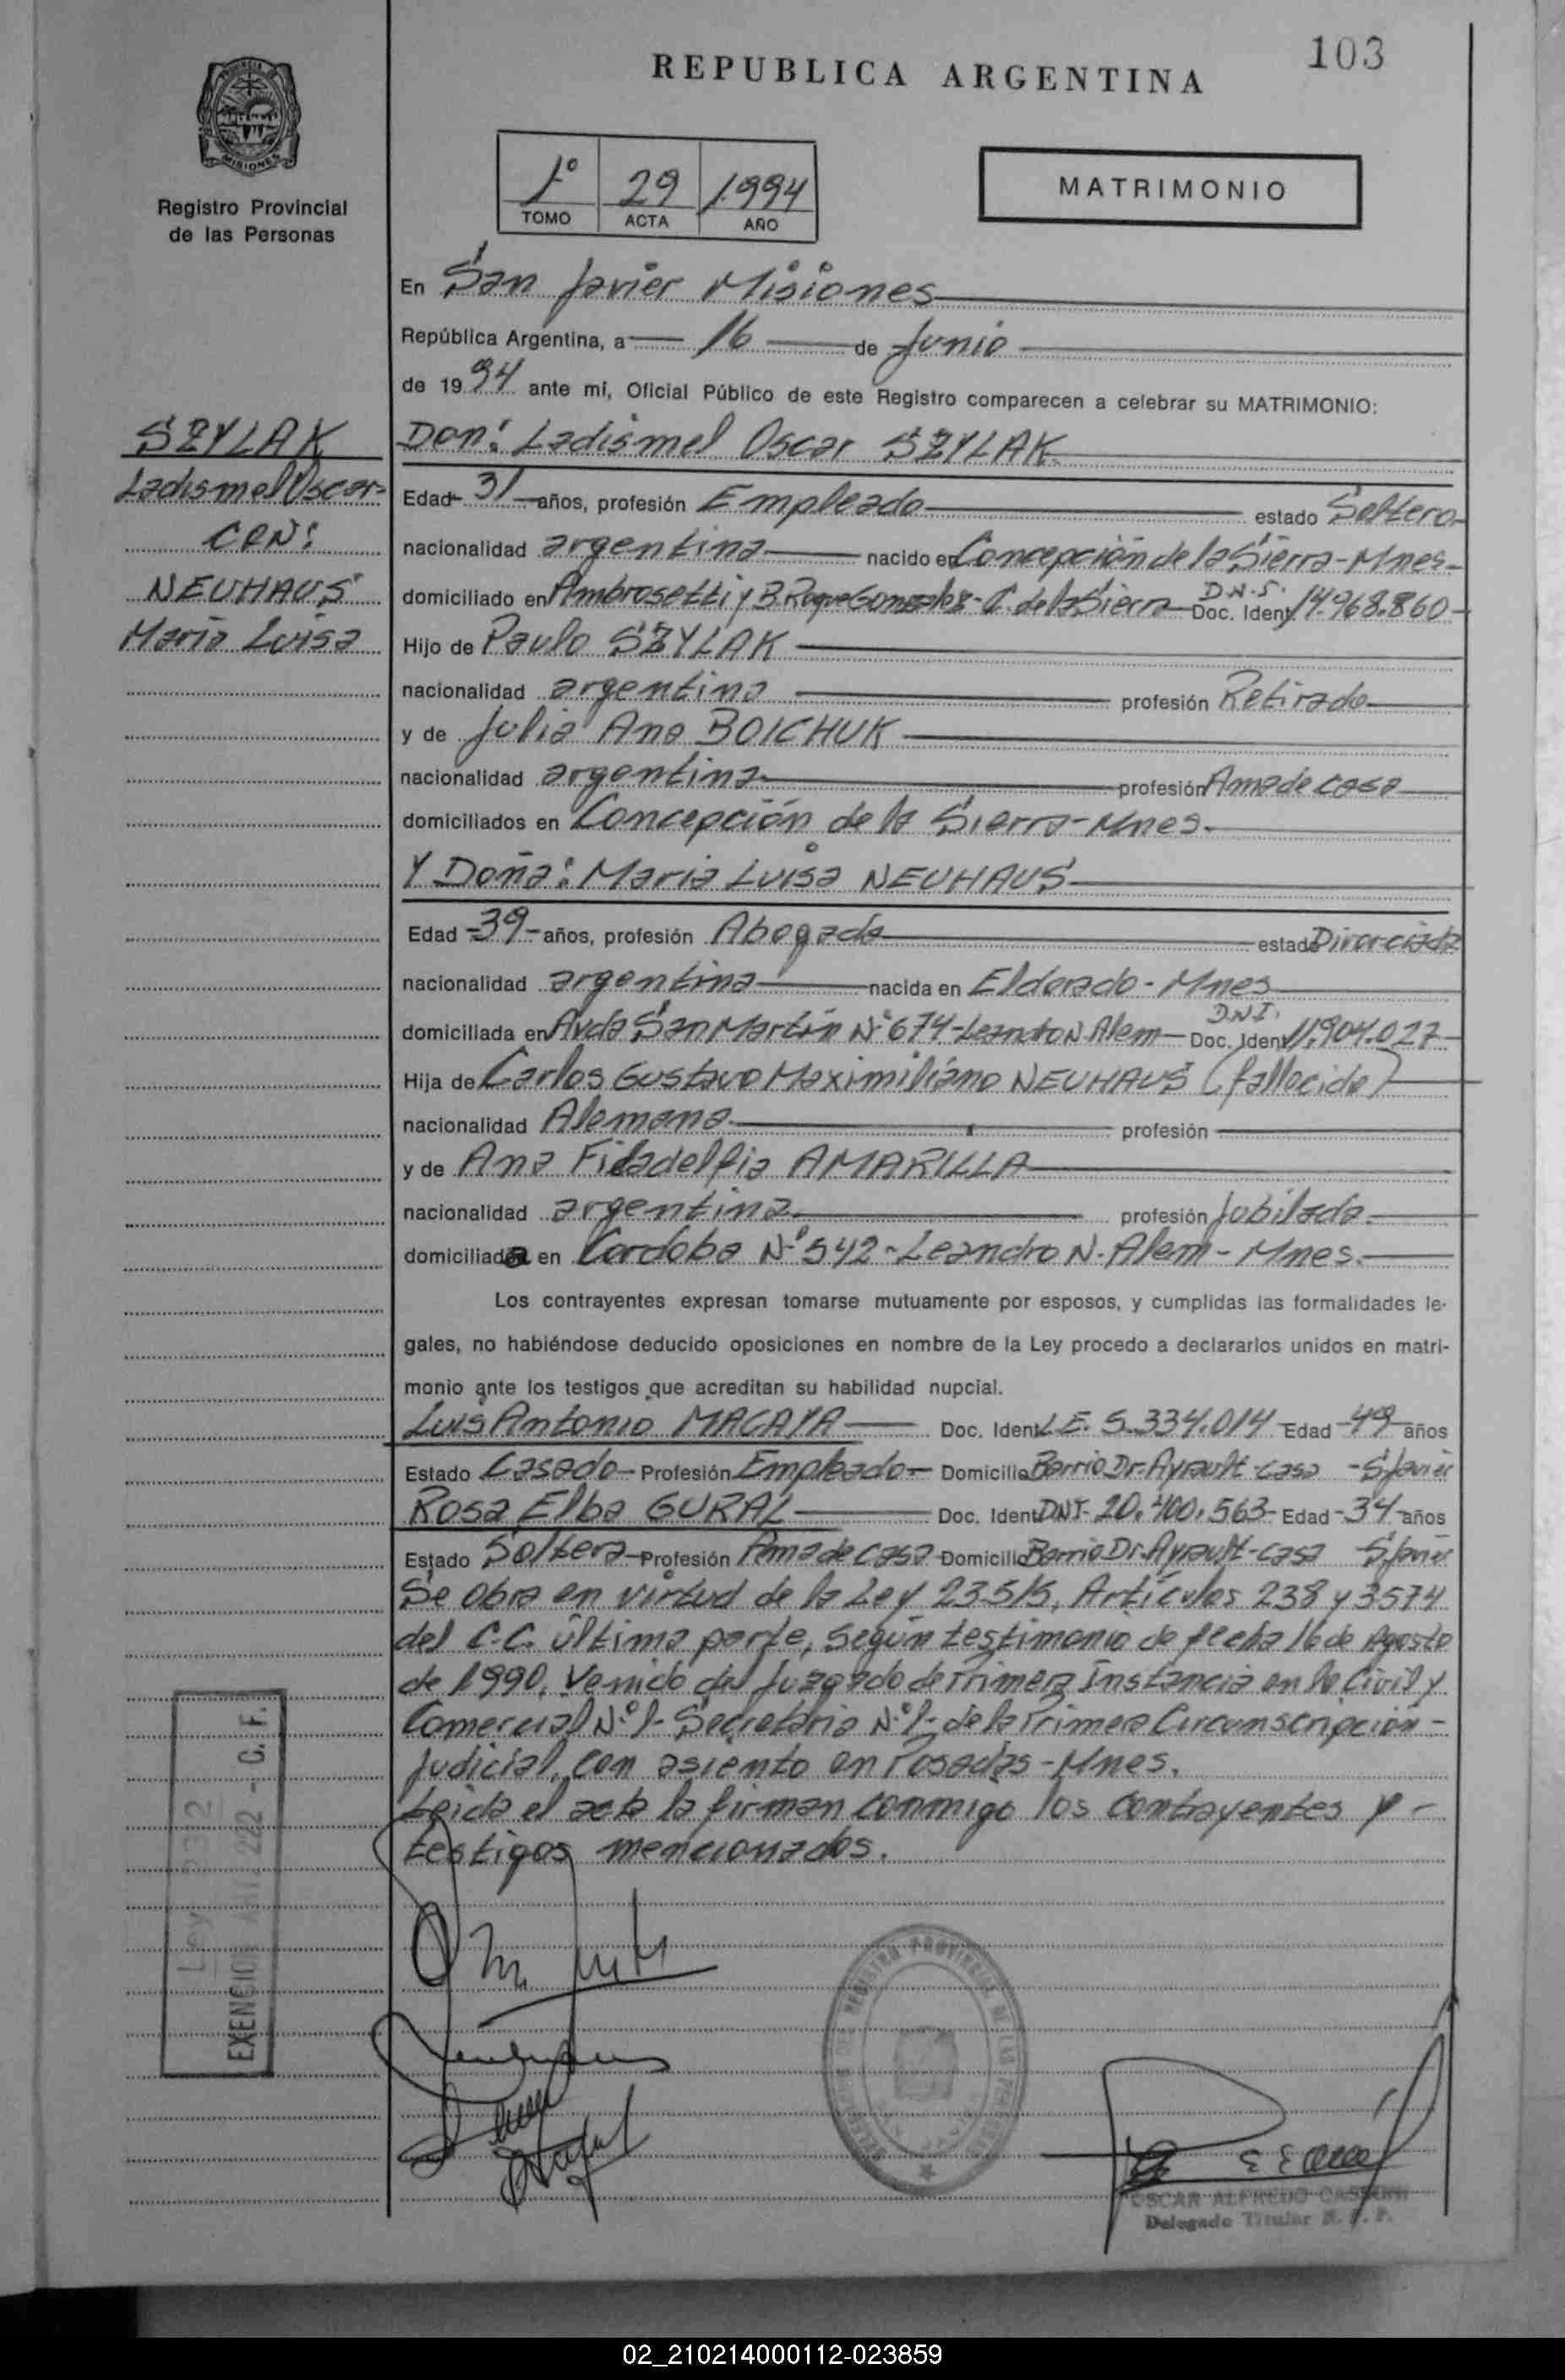 103
REPUBLICA ARGENTINA
PROVINCIA DE
MISIONES
Registro Provincial
de las Personas
1º 29 1994
TOMO ACTA AÑO
MATRIMONIO
En San Javier Misiones
República Argentina, a 16 de Junio
de 1994 ante mi, Oficial Público de este Registro comparecen a celebrar su MATRIMONIO:
SZYLAK
Ladismel Oscar
CON:
NEUHAUS
Maria Luisa
Don: Ladismel Oscar SZYLAK
Edad 31 años, profesión Empleado estado Soltero
nacionalidad argentina nacido en Concepción de la Sierra-Mnes-
domiciliado en Ambrosetti y B. Roque Gonzalez - C. de la Sierra D.N.I. Doc. Ident. 14.968.860
Hijo de Paulo SZYLAK
nacionalidad argentina profesión Retirado
y de Julia Ana BOICHUK
nacionalidad argentina profesión Ama de casa
domiciliados en Concepción de la Sierra-Mnes.
Y Doña: Maria Luisa NEUHAUS
Edad 39 años, profesión Abogada estado Divorciada
nacionalidad argentina nacida en Eldorado - Mnes
domiciliada en Avda San Martín Nº 674 - Leandro N. Alem D.N.I. Doc. Ident. 11.904.027
Hija de Carlos Gustavo Maximiliano NEUHAUS (fallecido)
nacionalidad Alemana profesión
y de Ana Filadelfia AMARILLA
nacionalidad argentina profesión Jubilada
domiciliada en Cordoba Nº 542 - Leandro N. Alem - Mnes.
Los contrayentes expresan tomarse mutuamente por esposos, y cumplidas las formalidades le-
gales, no habiéndose deducido oposiciones en nombre de la Ley procedo a declararlos unidos en matri-
monio ante los testigos que acreditan su habilidad nupcial.
Luis Antonio MACAYA Doc. Ident. L.E. 5.334.014 Edad 49 años
Estado Casado Profesión Empleado Domicilio Barrio Dr. Ayrault - casa - S. Javier
Rosa Elba GURAL Doc. Ident. DNI. 20.400.563 Edad 34 años
Estado Soltera Profesión Ama de casa Domicilio Barrio Dr. Ayrault - casa S. Javier
Se obra en virtud de la Ley 23.515, Artículos 238 y 3574
del C.C. última parte, según testimonio de fecha 16 de Agosto
de 1990, venido del Juzgado de Primera Instancia en lo Civil y
Comercial Nº 1- Secretaria Nº 1- de la Primera Circunscripción -
Judicial, con asiento en Posadas - Mnes.
Leida el acta la firman conmigo los contrayentes y -
testigos mencionados.
Ley
EXENCION 222 - C. F.
OSCAR ALFREDO
Delegado Titular R. P. P.
02_210214000112-023859